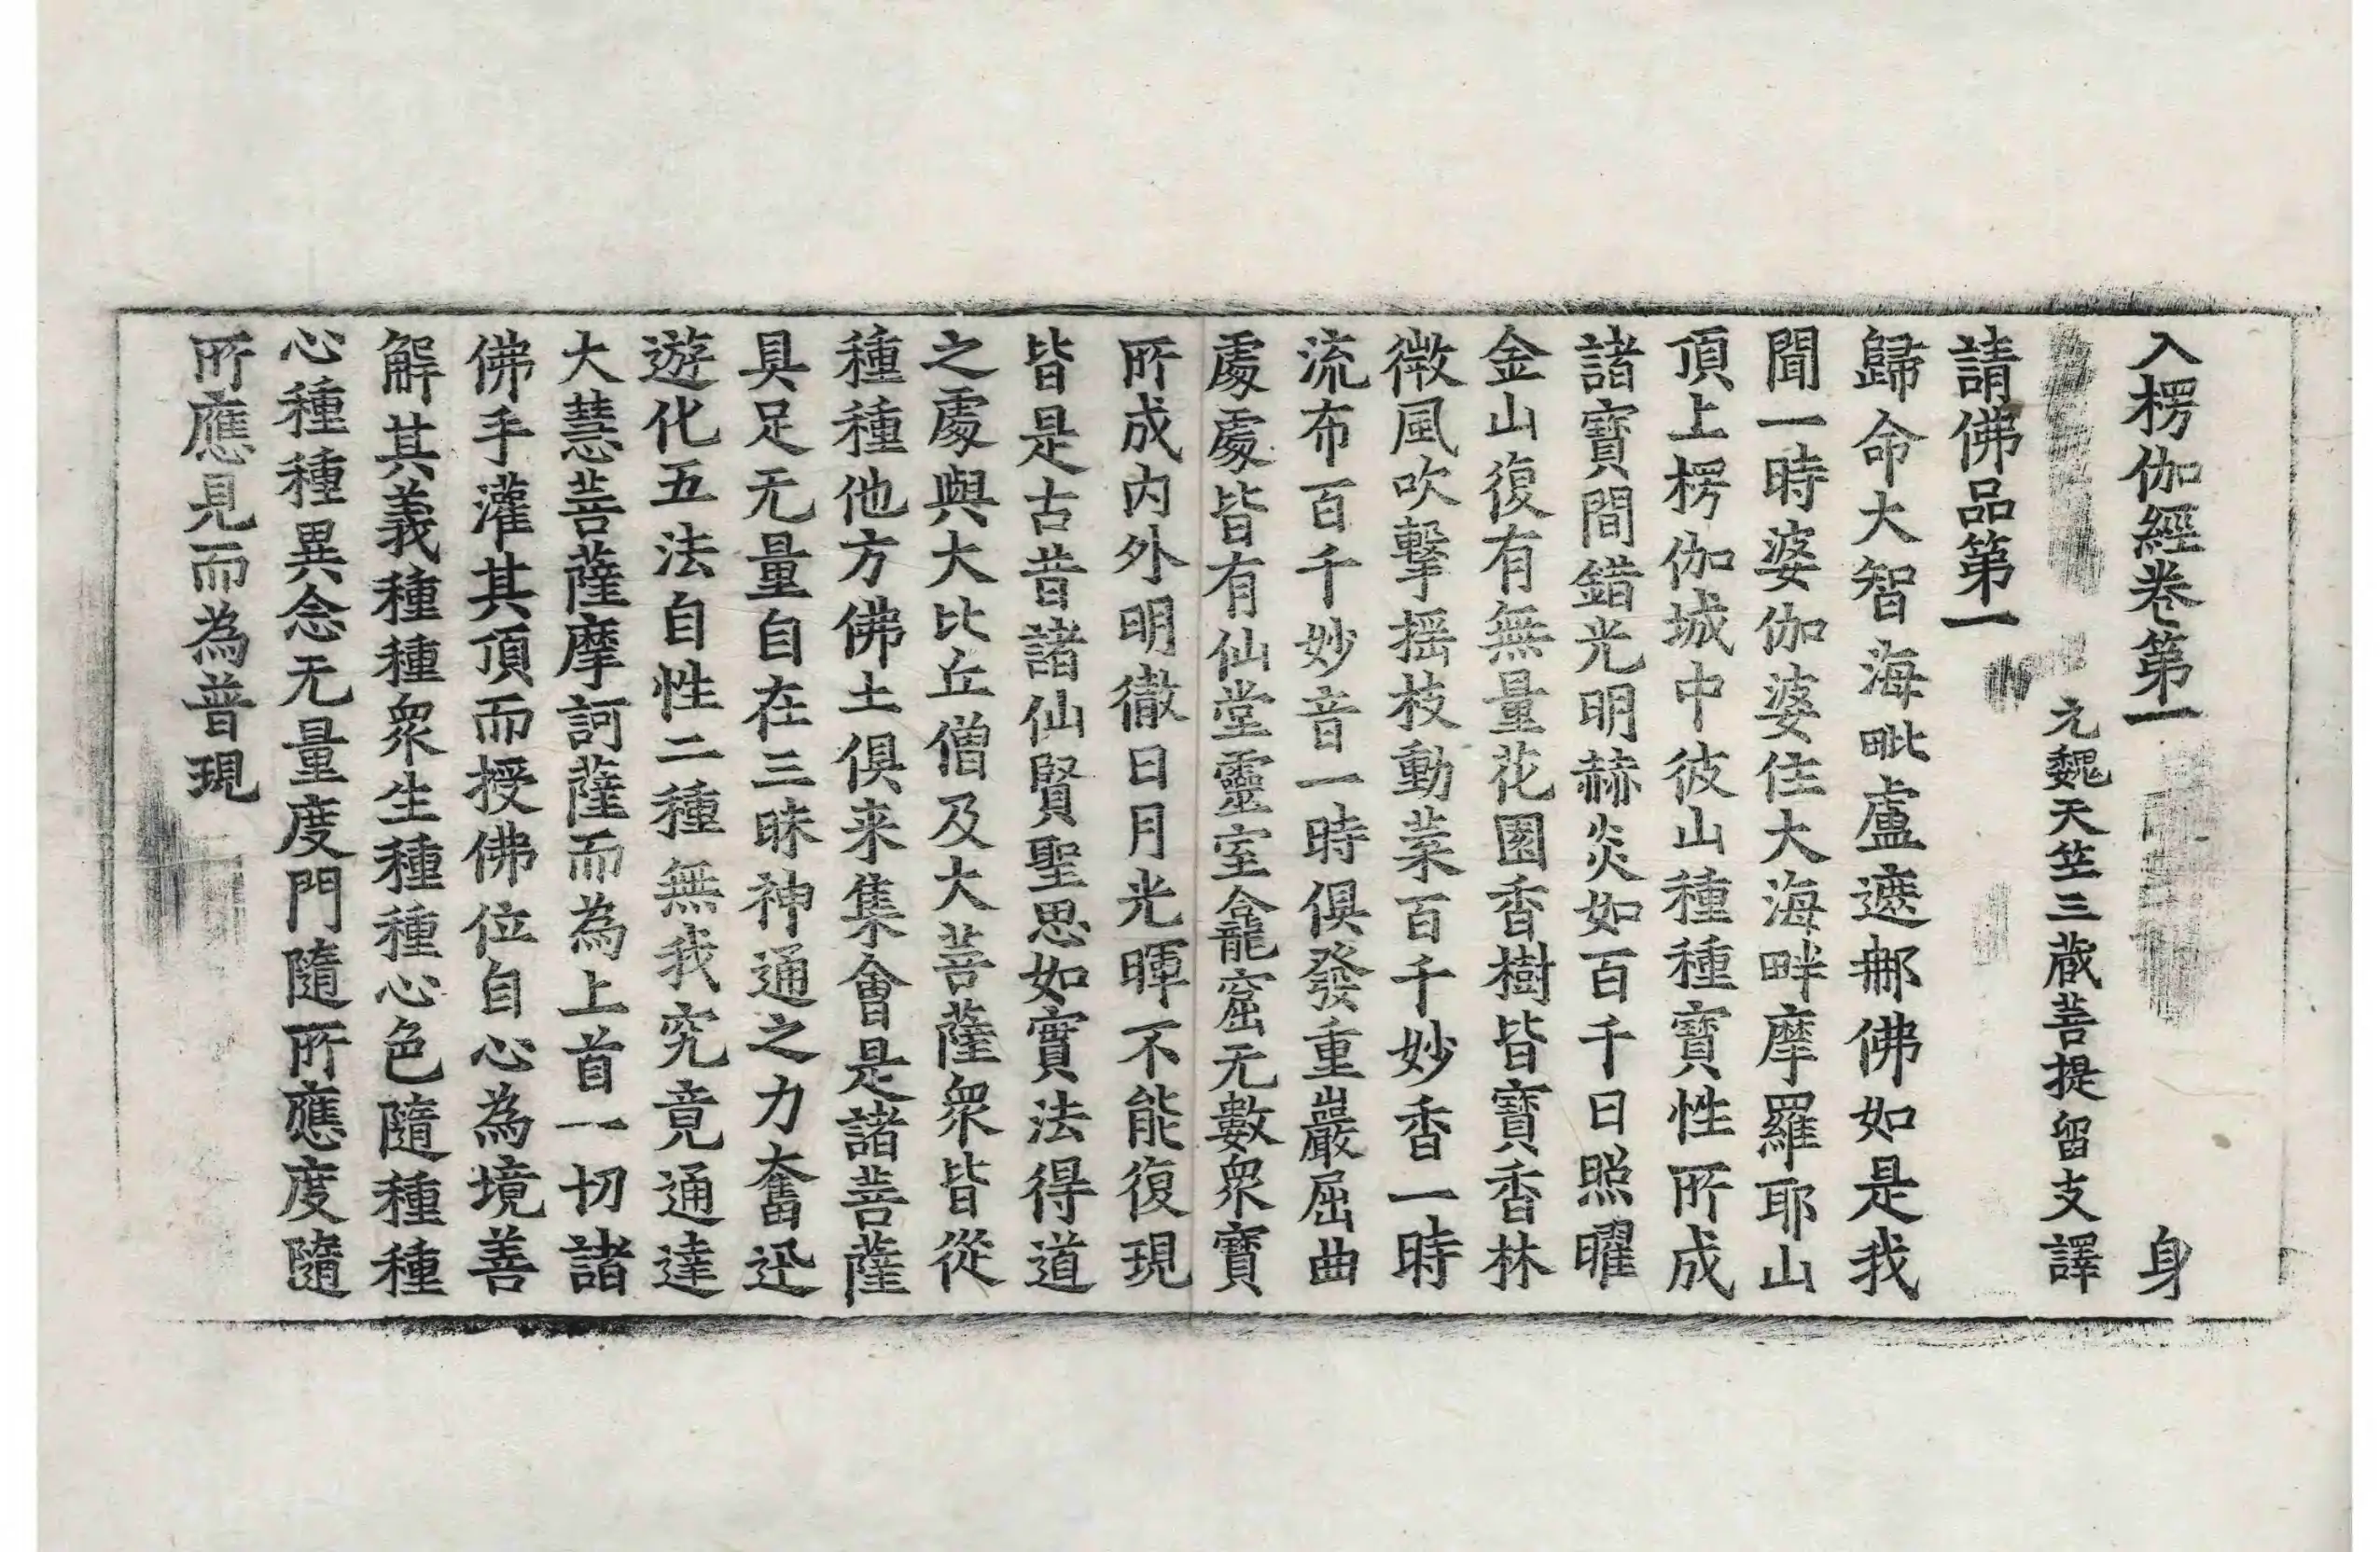 入楞伽經卷第一 身
元魏天竺三藏菩提留支譯
請佛品第一
歸命大智海毗盧遮那佛如是我
聞一時婆伽婆住大海畔摩羅耶山
頂上楞伽城中彼山種種寶性所成
諸寶間錯光明赫炎如百千日照曜
金山復有無量花園香樹皆寶香林
微風吹擊揺枝動葉百千妙香一時
流布百千妙音一時俱發重巖屈曲
處處皆有仙堂靈室龕窟无數衆寶
所成内外明徹日月光暉不能復現
皆是古昔諸仙賢聖思如實法得道
之處與大比丘僧及大菩薩衆皆從
種種他方佛土俱来集會是諸菩薩
具足无量自在三昧神通之力奮迅
遊化五法自性二種無我究竟通達
大慧菩薩摩訶薩而為上首一切諸
佛手灌其頂而授佛位自心為境善
解其義種種衆生種種心色隨種種
心種種異念无量度門隨所應度隨
所應見而為普現